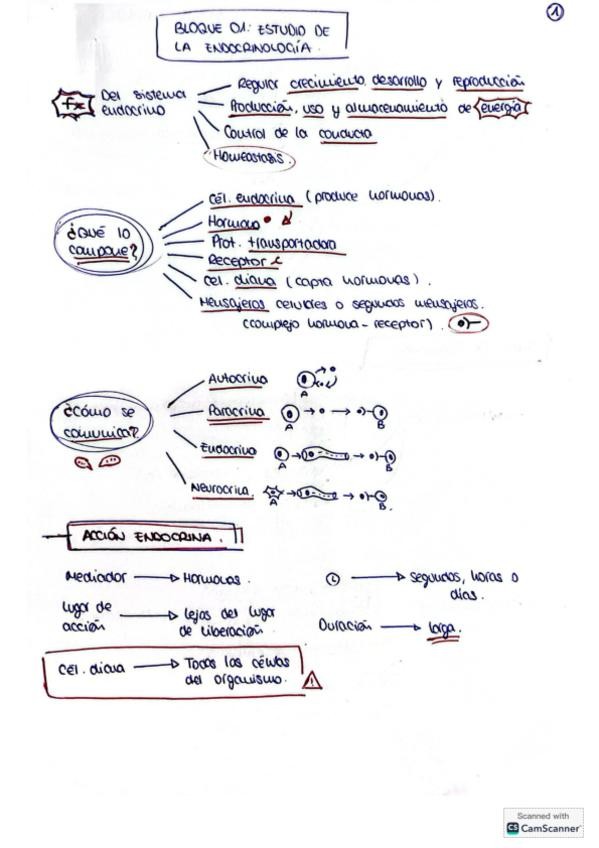 1
BLOQUE 01: ESTUDIO DE
LA ENDOCRINOLOGÍA.
fx Del sistema
endocrino
Regular crecimiento, desarrollo y reproducción
Producción, uso y almacenamiento de energía
Control de la conducta
Homeostasis.
¿QUÉ lo
compone?
Cél. endocrina (produce hormonas).
Hormona
Prot. transportadora
Receptor
Cel. diana (capta hormonas).
Mensajeros celulares o segundos mensajeros.
(complejo hormona - receptor).
¿Cómo se
comunica?
Autocrina
A
Paracrina
A B
Endocrina
A B
Neurocrina.
A B.
ACCIÓN ENDOCRINA.
Mediador Hormonas.
segundos, horas o
días.
Lugar de
acción
Lejos del lugar
de liberación.
Duración larga.
Cél. diana Todas las células
del organismo.
!
Scanned with
CS CamScanner